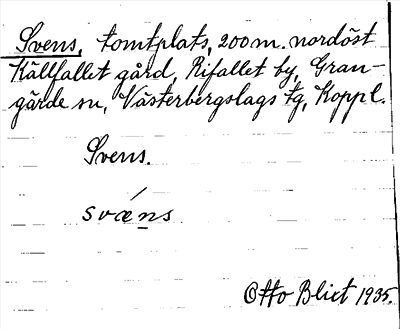 Svens, tomtplats, 200 m. nordöst
Källfallet gård, Rifallet by, Gran-
gärde sn, Västerbergslags tg, Koppl.
Svens.
svæ´ns
Otto Blixt 1935.